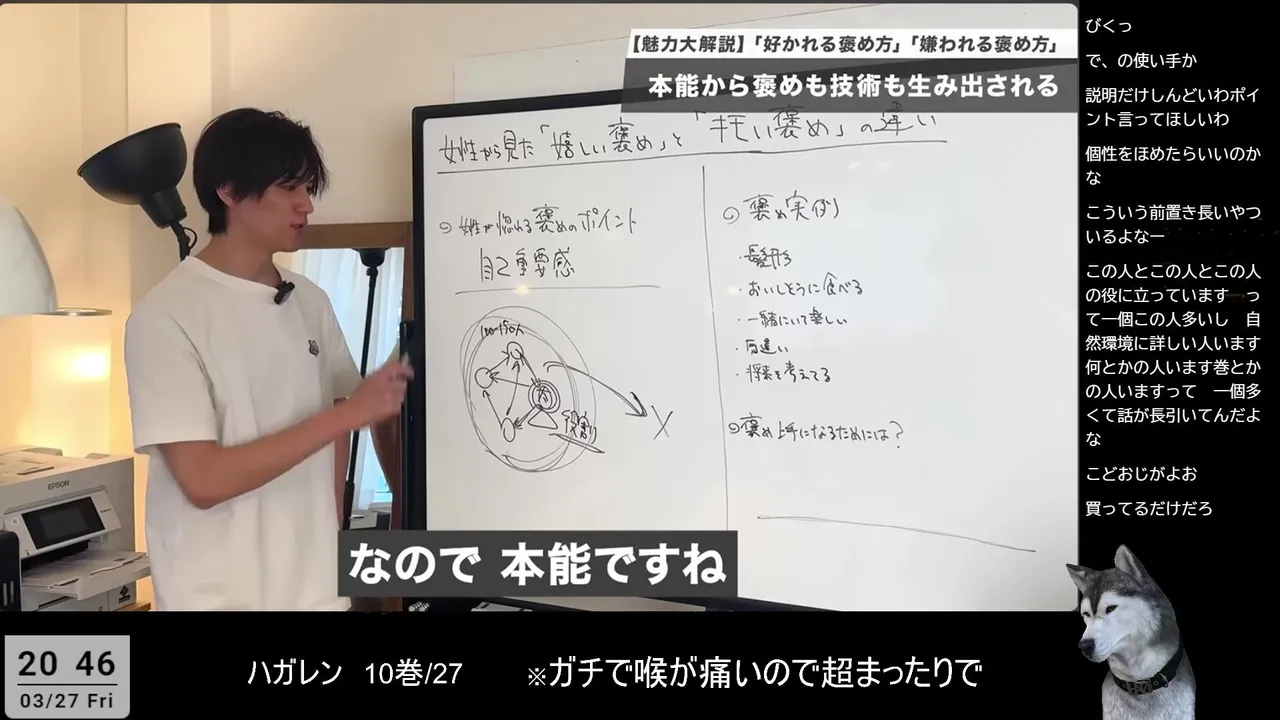 【魅力大解説】「好かれる褒め方」「嫌われる褒め方」
本能から褒めも技術も生み出される
女性から見た「嬉しい褒め」と「キモい褒め」の違い
女性が惚れる褒めのポイント
自己重要感
100〜150人
役割
X
褒め実例
・髪形
・おいしそうに食べる
・一緒にいて楽しい
・気遣い
・将来を考えてる
褒め上手になるためには?
EPSON
なので 本能ですね
びくっ
で、の使い手か
説明だけしんどいわポイ
ント言ってほしいわ
個性をほめたらいいのか
な
こういう前置き長いやつ
いるよなー
この人とこの人とこの人
の役に立っています　っ
て一個この人多いし　自
然環境に詳しい人います
何とかの人います巻とか
の人いますって　一個多
くて話が長引いてんだよ
な
こどおじがよお
買ってるだけだろ
20 46
03/27 Fri
ハガレン 10巻/27
※ガチで喉が痛いので超まったりで